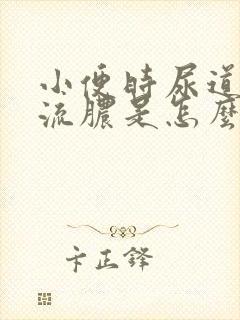 小便时尿道
流膿是怎麼
卞正鋒